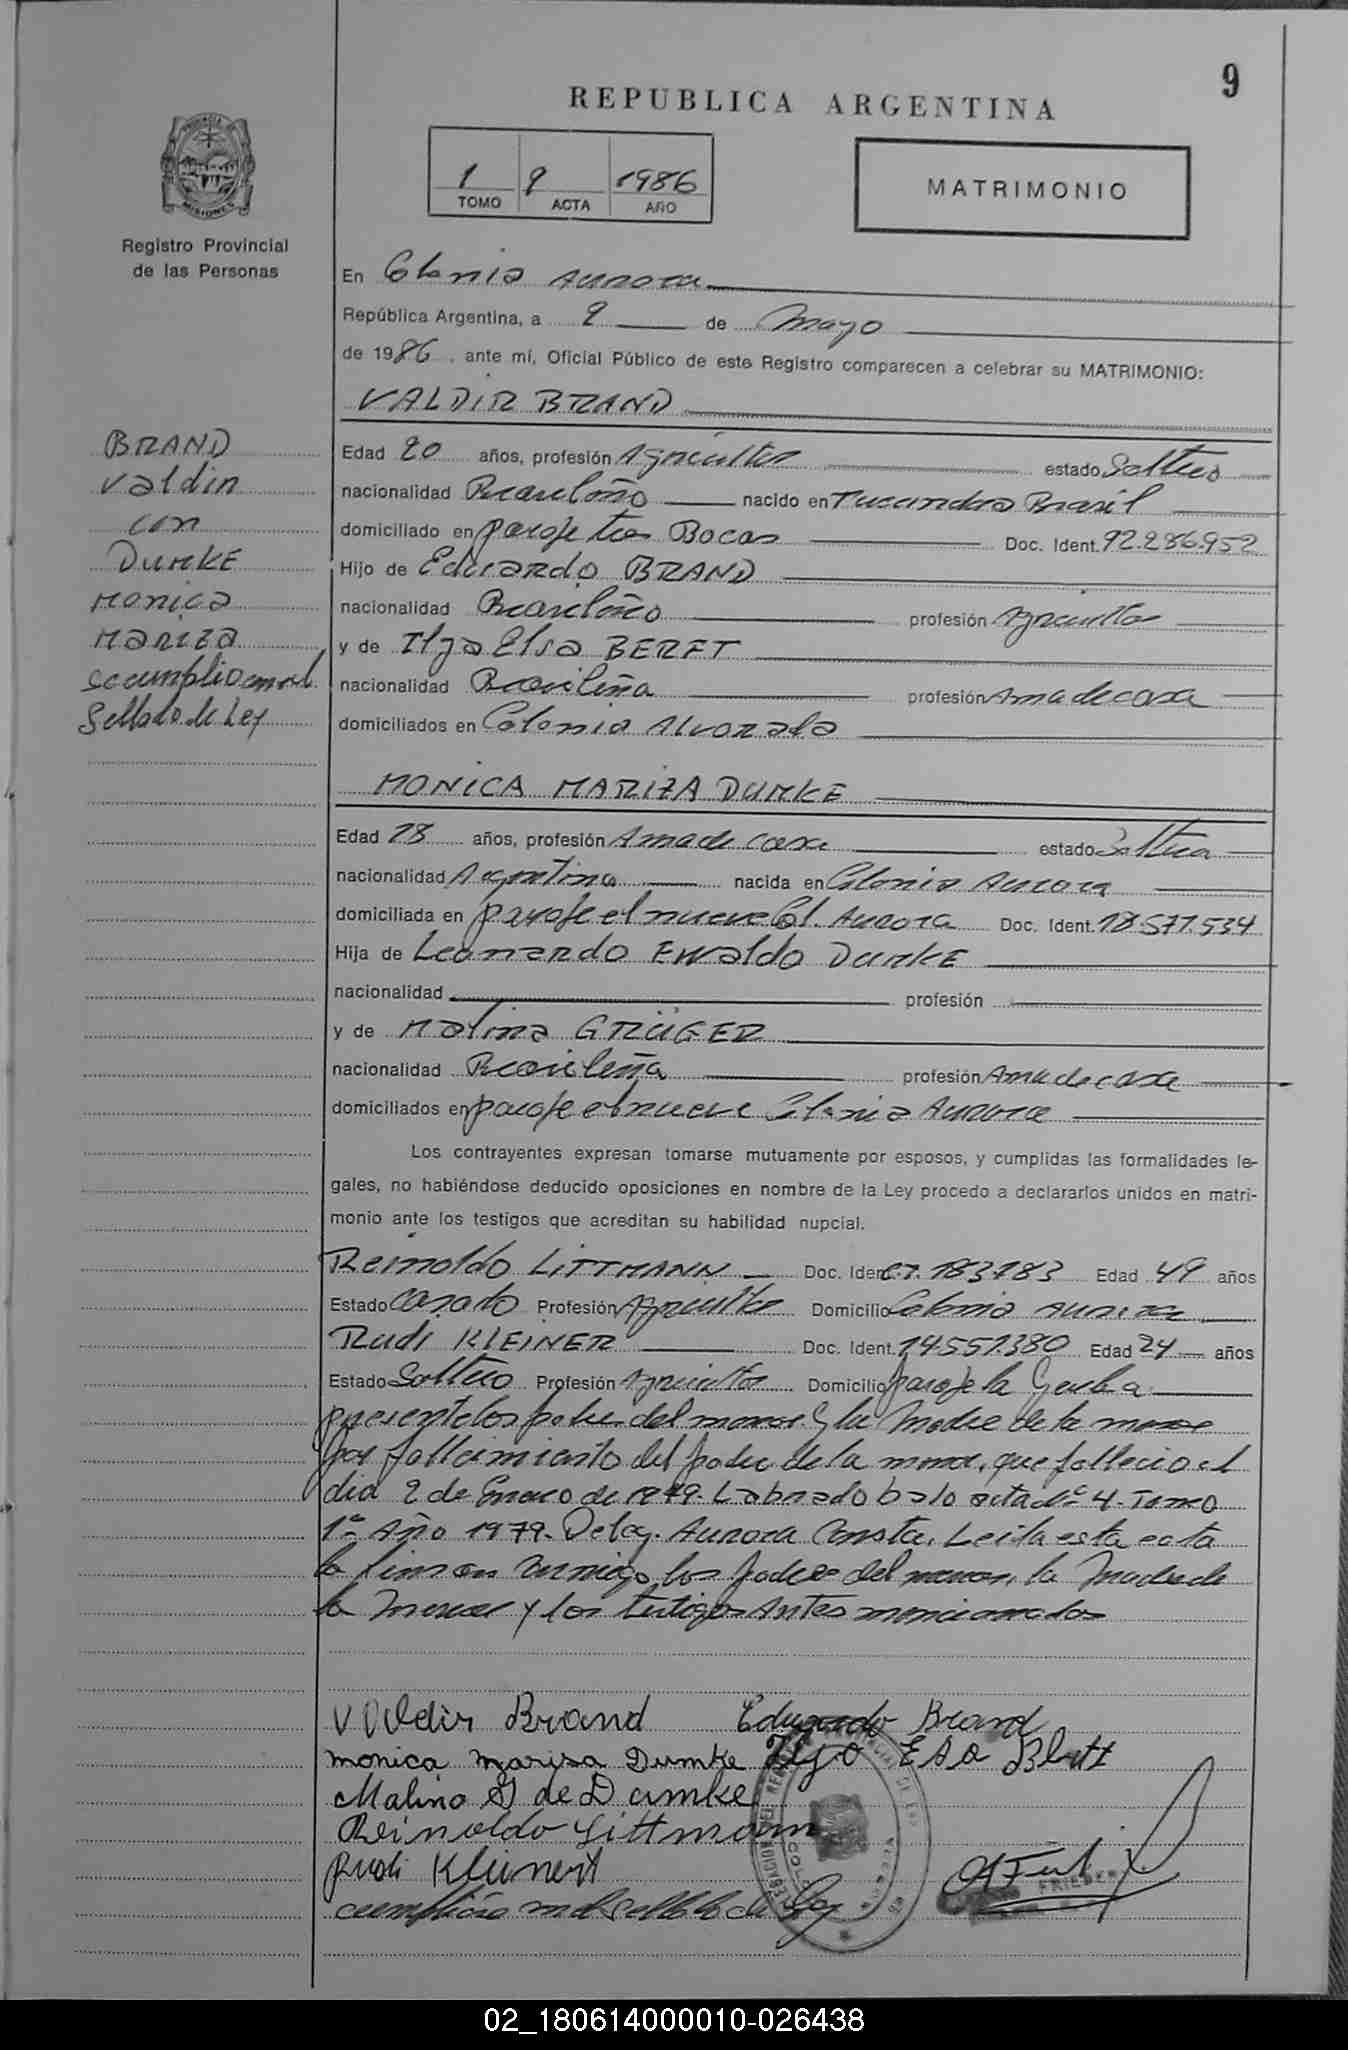 9
REPUBLICA ARGENTINA
1 9 1986
TOMO ACTA AÑO
MATRIMONIO
PROVINCIA
MISIONES
Registro Provincial
de las Personas
En Colonia Aurora
República Argentina, a 9 de Mayo
de 1986, ante mí, Oficial Público de este Registro comparecen a celebrar su MATRIMONIO:
VALDIR BRAND
BRAND
Valdir
con
DUMKE
Monica
Mariza
se cumplio con el
Sellado de Ley
Edad 20 años, profesión Agricultor estado Soltero
nacionalidad Brasileño nacido en Tucundera Brasil
domiciliado en paraje tres Bocas Doc. Ident. 92.286.952
Hijo de Eduardo BRAND
nacionalidad Brasileño profesión Agricultor
y de Ilga Elsa BERFT
nacionalidad Brasileña profesión Ama de casa
domiciliados en Colonia Alvorada
MONICA MARIZA DUMKE
Edad 18 años, profesión Ama de casa estado Soltera
nacionalidad Argentina nacida en Colonia Aurora
domiciliada en paraje el nueve Col. Aurora Doc. Ident. 18.571.534
Hija de Leonardo Ewaldo DUMKE
nacionalidad profesión
y de Malina GRÜGER
nacionalidad Brasileña profesión Ama de casa
domiciliados en paraje el nueve Colonia Aurora
Los contrayentes expresan tomarse mutuamente por esposos, y cumplidas las formalidades le-
gales, no habiéndose deducido oposiciones en nombre de la Ley procedo a declararlos unidos en matri-
monio ante los testigos que acreditan su habilidad nupcial.
Reinoldo LITTMANN Doc. Ident. C.I. 183.183 Edad 49 años
Estado Casado Profesión Agricultor Domicilio Colonia Aurora
Rudi KLEINER Doc. Ident. 14.551.380 Edad 24 años
Estado Soltero Profesión Agricultor Domicilio paraje la
presente los padres del menor y la Madre de la menor
por fallecimiento del padre de la menor, que fallecio el
dia 2 de Enero de 1979. Labrado bajo acta Nº 4. Tomo
1º Año 1979. Deleg. Aurora Consta. Leida esta acta
la firman conmigo los padres del menor, la Madre de
la menor y los testigos Antes mencionados
Valdir Brand Eduardo Brand
monica marisa Dumke Ilga Elsa
Malina G de Dumke
Reinoldo Littmann
Rudi Kleinert
cumplióse con el sellado de Ley
02_180614000010-026438